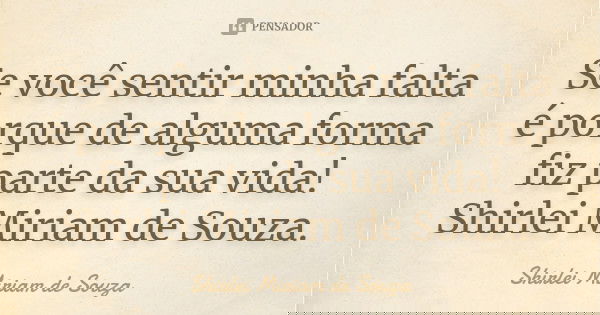 PENSADOR
Se você sentir minha falta
é porque de alguma forma
fiz parte da sua vida!
Shirlei Miriam de Souza.
Shirlei Miriam de Souza